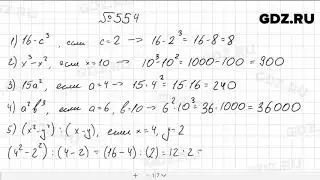 GDZ.RU
№554
1) 16-c³, если c=2 → 16-2³=16-8=8
2) x³-x², если x=10 → 10³-10²=1000-100=900
3) 15a², если a=4 → 15·4²=15·16=240
4) a²b³, если a=6, b=10 → 6²·10³=36·1000=36000
5) (x²-y²):(x-y), если x=4, y=2
(4²-2²):(4-2)=(16-4):(2)=12:2=